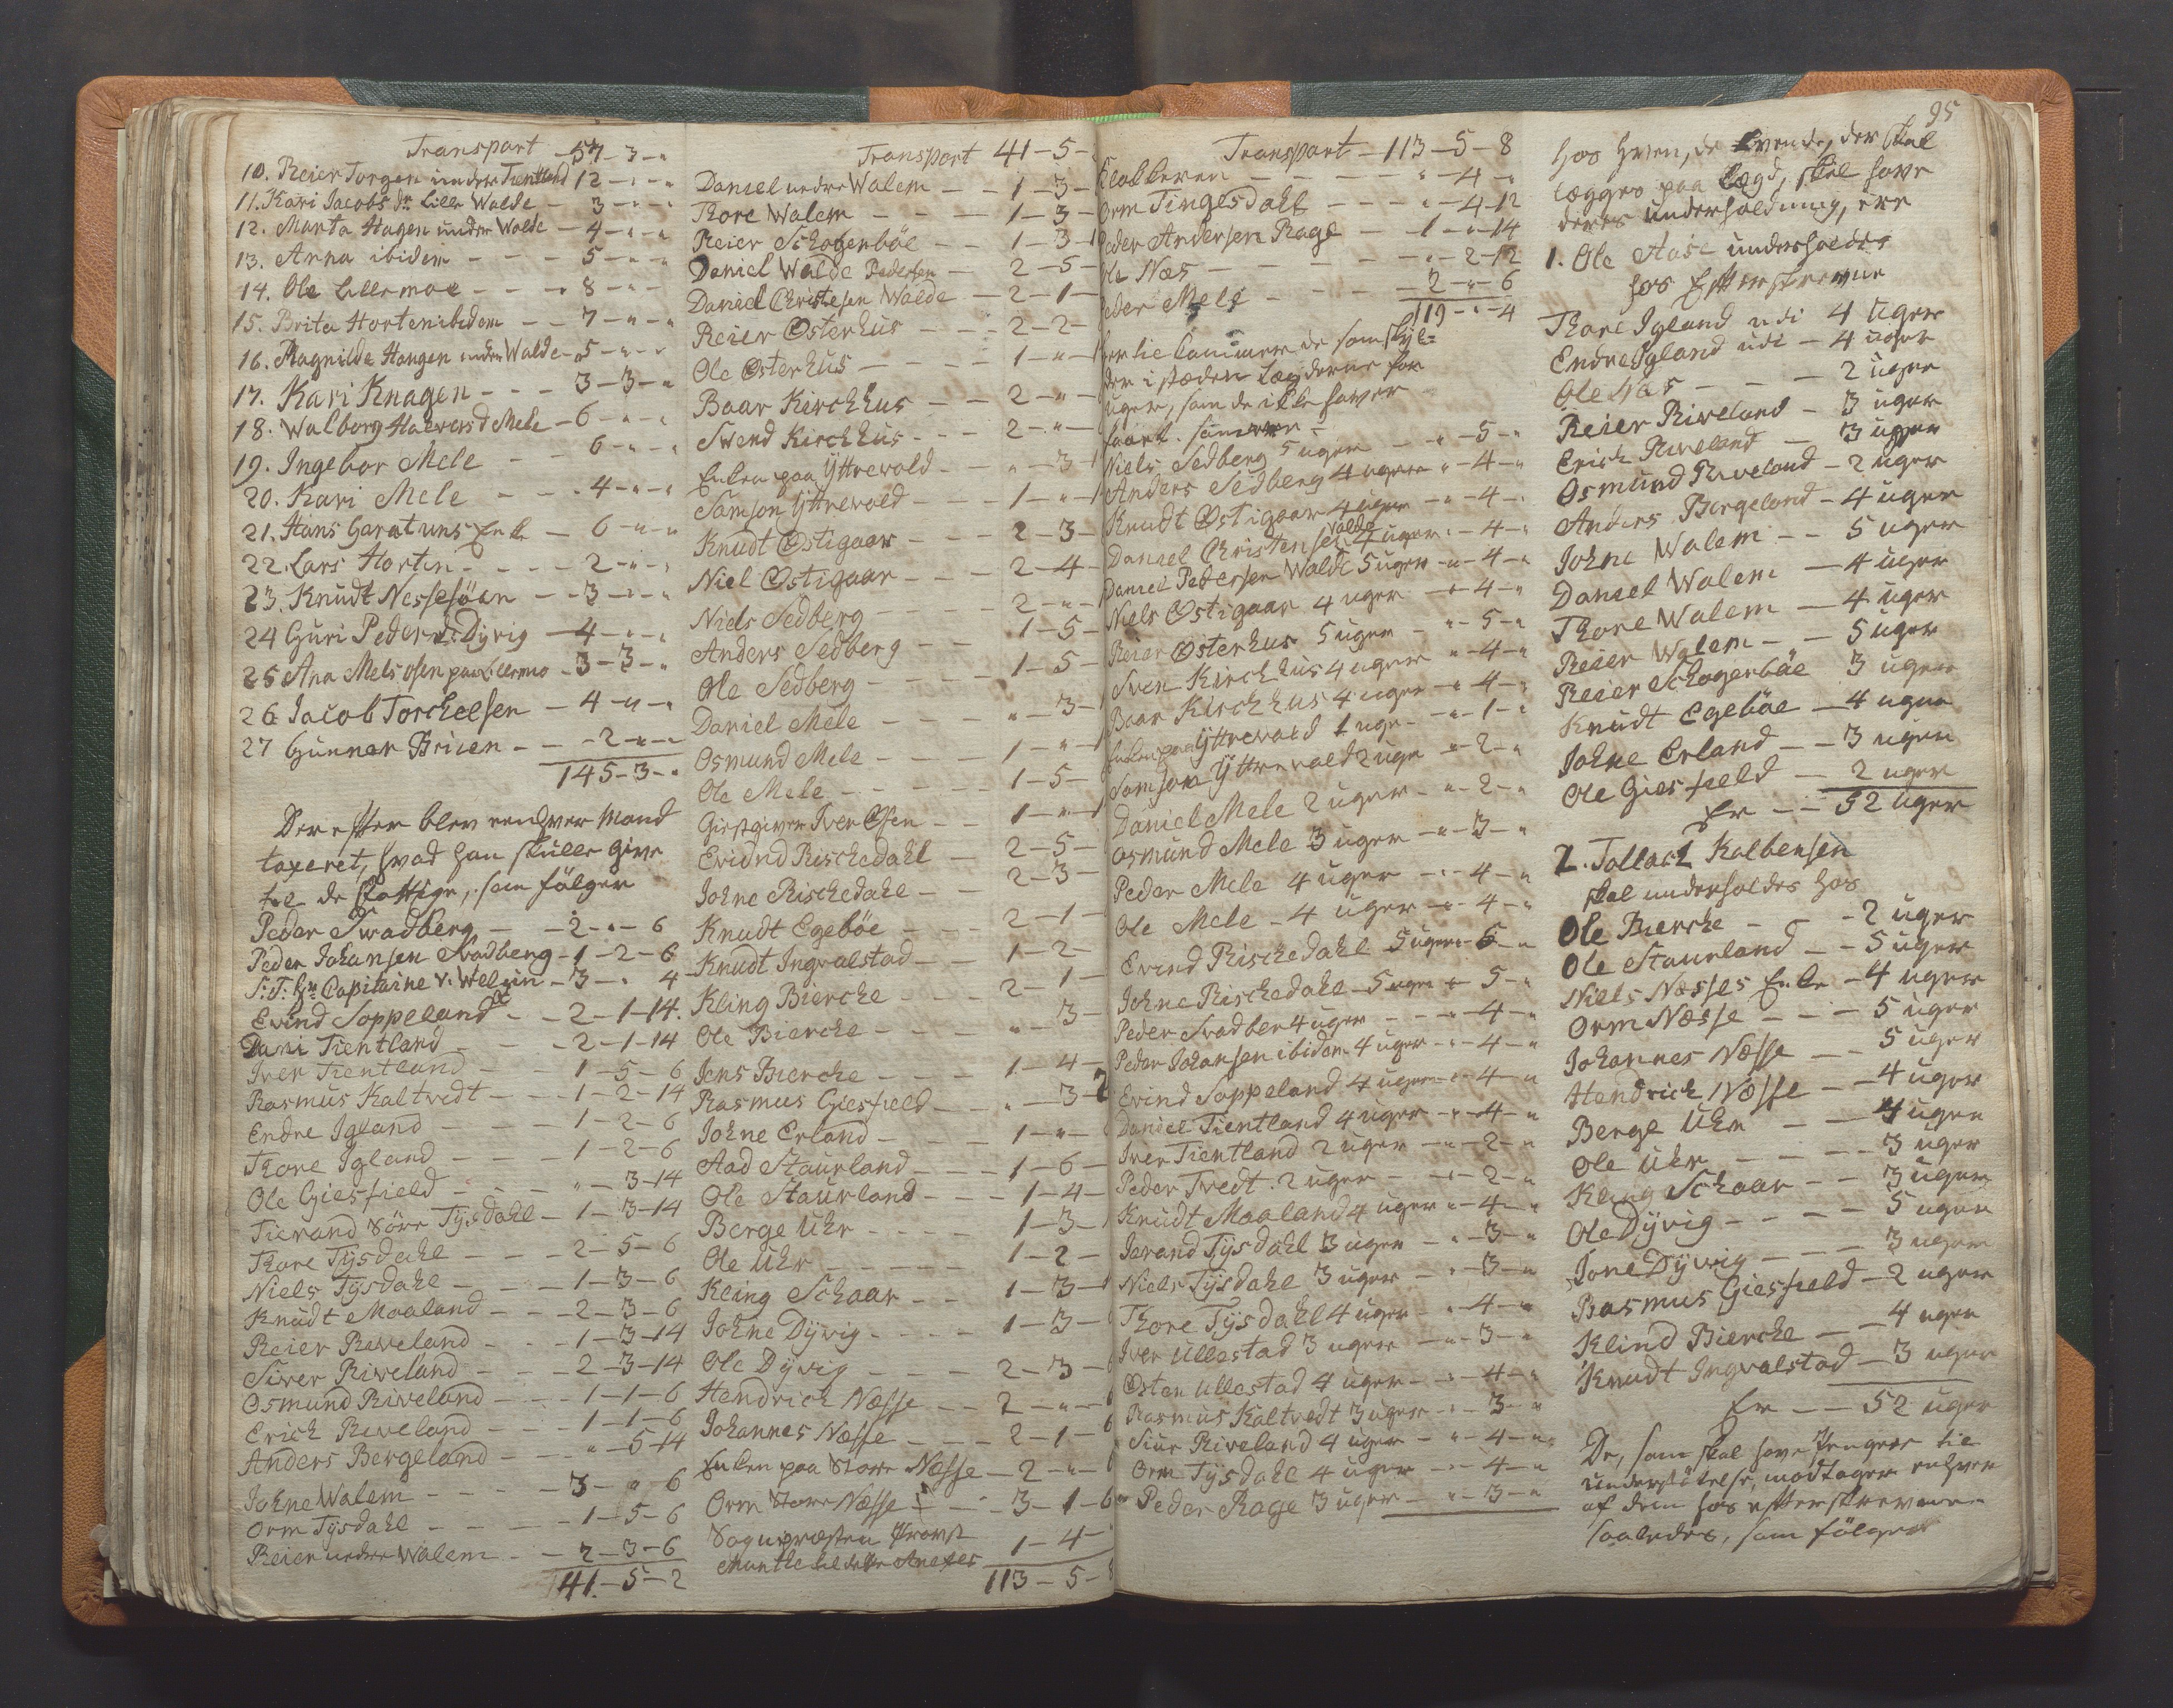 Transport - 57-3-"
10. Reier Torgen under Tientland 12-"-"
11. Kari Jacobs dr. Lille Walde - 3-"-"
12. Marta Hagen under Walde - 4-"-"
13. Anna ibidem - - - 5-"-"
14. Ole Lillemoe - - - 8-"-
15. Brita Horten ibidem - - 7-"-"
16. Magnilda Haugen under Walde - 5-"-"
17. Kari Knagen - - - 3-3-"
18. Walborg Halvorsd Mele - 6-"-"
19. Ingebor Mele - - 6-"-"
20. Kari Mele - - - 4-"-"
21. Hans Garatuns Enke - 6-"-"
22. Lars Horten - - - - 2-"-"
23. Knudt Nessesöen - - 3-"-"
24 Guri Peders d. Dyvig - 4-"-"
25 Ana Mels osen paa Lillemo - 3-3-"
26 Jacob Torchelsen - 4-"-"
27 Gunner Brizen - - - 2-"-"
145-3-"
Derefter blev eenhver Mand
taxeret, hvad han skulle give
til de fattige, som fölger
Peder Svadberg - - 2-"-6
Peder Johansen Svadberg - 1-2-6
S: T: Hr Capitaine v. Welzin - 3-"-4
Evind Soppeland - - 2-1-14.
Dani Tientland - - - 2-1-14
Iver Tientland - - 1-5-6
Rasmus Kaltvedt - - - 1-2-14
Endre Igland - - - 1-2-6
Thore Igland - - - 1-2-6
Ole Giesfield - - - "-3-14
Tierand Söre Tysdahl - 1-3-14
Thore Tysdahl - - - 2-5-6
Niels Tysdahl - - - 1-3-6
Knudt Maaland - - - 2-3-6
Reier Riveland - - - 1-3-14
Siver Riveland - - - 2-3-14
Osmund Riveland - - - 1-1-6
Erich Riveland - - - 1-1-6
Anders Bergeland - - - "-5-14
Johne Walem - - - - 3-"-6
Orm Tysdahl - - - - 1-5-6
Reier nedre Walem - - 2-3-6
41-5-2
Transport 41-5-
Daniel nedre Walem - - 1-3-
Thore Walem - - - 1-3-
Reier Schogenböe - - 1-3-
Daniel Walde Pedersen - 2-5-
Daniel Christesen Walde - 2-1-
Reier Østerhus - - - 2-2-
Ole Østerhus - - - - 1-"-
Baar Kirchhus - - 2-"-
Svend Kirchhus - - - 2-"-
Enken paa Yttrevold - - "-3-
Samson Yttrevold - - - 1-"-
Knudt Østigaar - - - 2-3-
Niel Østigaar - - - 2-4-
Niels Sedberg - - - 2-"-
Anders Sedberg - - 1-5-
Ole Sedberg - - - - 1-5-
Daniel Mele - - - - "-3-
Osmund Mele - - - 1-"-
Ole Mele - - - - - 1-5-
Giestgiver Iver Olsen - - 1-"-
Evidnd Rischedahl - - 2-5-
Johne Rischedahl - - 2-3-
Knudt Egeböe - - - 2-1-
Knudt Ingvalstad - - 1-2-
Kling Bierche - - - 2-1-
Ole Bierche - - - - "-3-
Jens Bierche - - - - 1-4-
Rasmus Giesfield - - - "-3-
Johne Erland - - - 1-"-
Aad Staurland - - - 1-6-
Ole Staurland - - - 1-4-
Berge Uhr - - - - 1-3-
Ole Uhr - - - - - 1-2-
Kling Schaar - - 1-3-
Johne Dyvig - - - - 1-3-
Ole Dyvig - - - - 2-3-
Hendrich Næsse - - 2-"-6
Johannes Næsse - - - 2-1-6
Enken paa Store Næsse - 2-"-
Orm Store Næsse - - 3-1-6
Sognepræsten Provst
Munthe til dette Anexes 1-4-
113-5-8
Transport - 113-5-8
Klokkeren - - - - "-4-"
Orm Tingesdahl - - - "-4-12
Peder Andersen Rage - 1-"-14
Ole Næs - - - - "-2-12
Peder Mele - - - - 2-"-6
119-"-4
Hertil kommer de som skyl-
der i stæden Lægderne for
uger, som de ikke haver
faaet. Summen -
Niels Sedberg 5 uger - - "-5-"
Anders Sedberg 4 uger "-4-"
Knudt Østigaar 4 uger "-4-"
Daniel Christensen Walde 4 uger "-4-"
Daniel Pedersen Walde 5 uger -"-4-"
Niels Østigaar 4 uger -"-4-"
Reier Østerhus 5 uger - "-5-"
Sven Kirchhus 4 uger "-4-"
Baar Kirchhus 4 uger -"-4-"
Enken paa Yttrevold 1 uge - "-1-"
Samson Yttrevold 2 uge "-2-"
Daniel Mele 2 uger - "-2-"
Osmund Mele 3 uger -"-3-"
Peder Mele 4 uger -"-4-"
Ole Mele - 4 uger -"-4-"
Evind Rischedahl 5 uger - 5-"
Johne Rischedahl - 5 uger "-5-"
Peder Svadber 4 uger - - "-4-"
Peder Johansen ibidem 4 uger "-4-"
Evind Soppeland 4 uger - "-4-"
Daniel Tientland 4 uger -"-4-"
Iver Tientland 2 uger -"-2-"
Peder Tvedt. 2 uger - "-2-"
Knudt Maaland 4 uger "-4-"
Jerand Tysdahl 3 uger - "-3-"
Niels Tysdahl 3 uger - "-3-"
Thore Tysdahl 4 uger - "-4-"
Iver Ullestad 3 uger -"-3-"
Østen Ullestad 4 uger - "-4-"
Rasmus Kaltvedt 3 uger -"-3-"
Siur Riveland 4 uger - "-4-"
Orm Tysdahl 4 uger -"-4-"
Peder Rage 3 uger - "-3-"
95
hos hven, de Svende, der skal
lægges paa Lægd, skal have
deres underholdning, ere
1. Ole Aase underholdes
hos Efterskrevne
Thore Igland udi 4 Uger
Endre Igland udi - 4 uger
Ole Næs - - - 2 uger
Reier Riveland - 3 uger
Erich Riveland - 3 uger
Osmund Riveland - 2 uger
Anders Bergeland - 4 uger
Johne Walem - - 5 uger
Daniel Walem - 4 uger
Thore Walem - 4 uger
Reier Walem - - 5 uger
Reier Schogenböe 3 uger
Knudt Egeböe - 4 uger
Johne Erland - - 3 uger
Ole Giesfield - 2 uger
Er - - 52 uger
2. Tollach Kalbensen
skal underholdes hos
Ole Bierche - - - 2 uger
Ole Staurland - - 5 uger
Niels Næsses Enke - 4 uger
Orm Næsse - - - 5 uger
Johannes Næsse - - 5 uger
Hendrich Næsse - - 4 uger
Berge Uhr - - - 4 uger
Ole Uhr - - - - 3 uger
Kling Schaar - - 3 uger
Ole Dyvig - - - - 5 uger
Jone Dyvig - - - 3 uger
Rasmus Giesfield - 2 uger
Klind Bierche - - 4 uger
Knudt Ingvalstad - 3 uger
Er - - 52 uger
De, som skal have Penger til
understötelse, modtager enhver
af dem hos efterskrevne
saaledes, som fölger